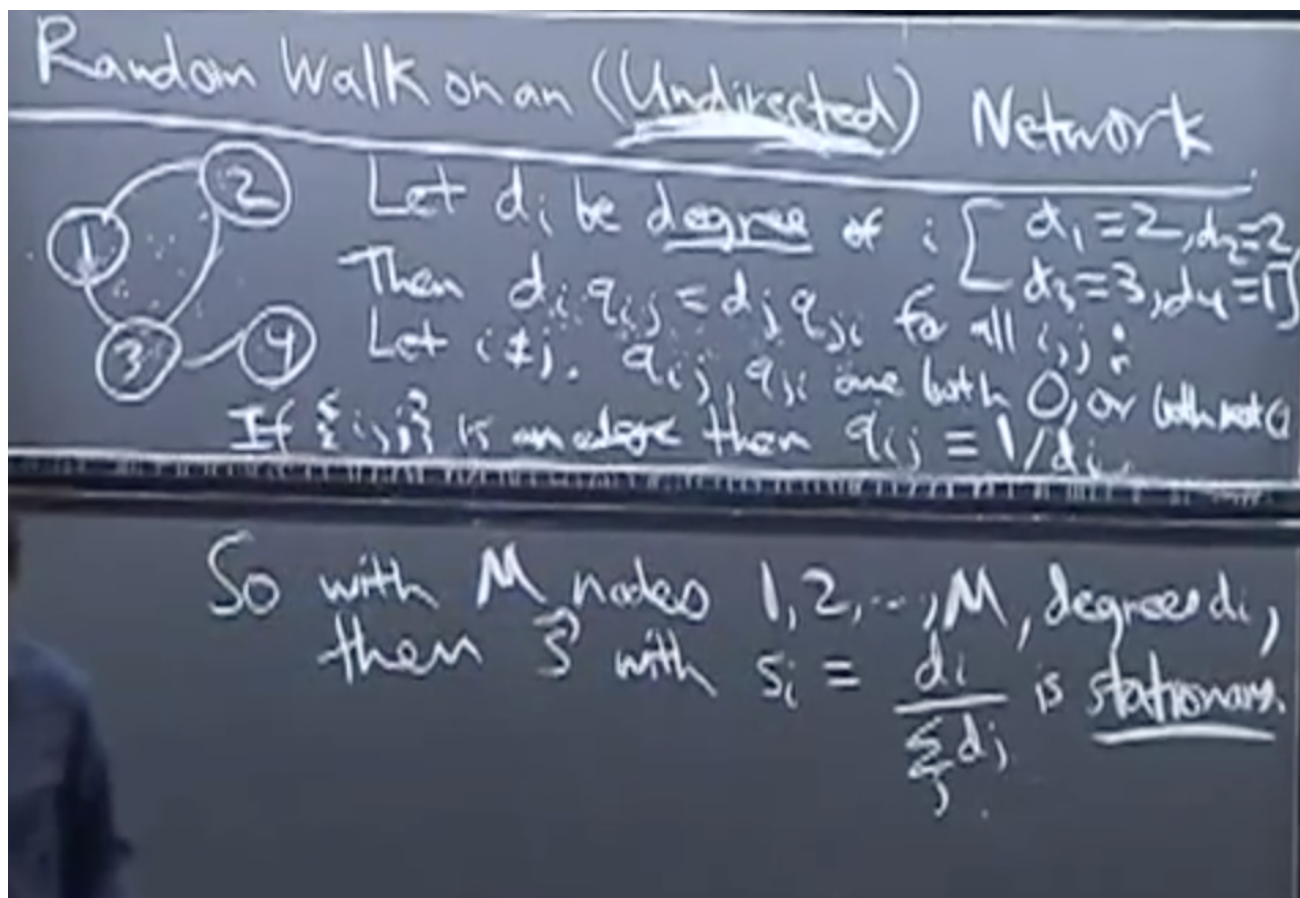 Random Walk on an (Undirected) Network
1
2
3
4
Let dᵢ be degree of i [d₁=2, d₂=2,
d₃=3, d₄=1]
Then dᵢ qᵢⱼ = dⱼ qⱼᵢ for all i,j:
Let i≠j. qᵢⱼ, qⱼᵢ are both 0, or both not 0
If {i,j} is an edge then qᵢⱼ = 1/dᵢ.
So with M nodes 1,2,...,M, degrees dᵢ,
then s⃗ with sᵢ = dᵢ / Σⱼ dⱼ is stationary.